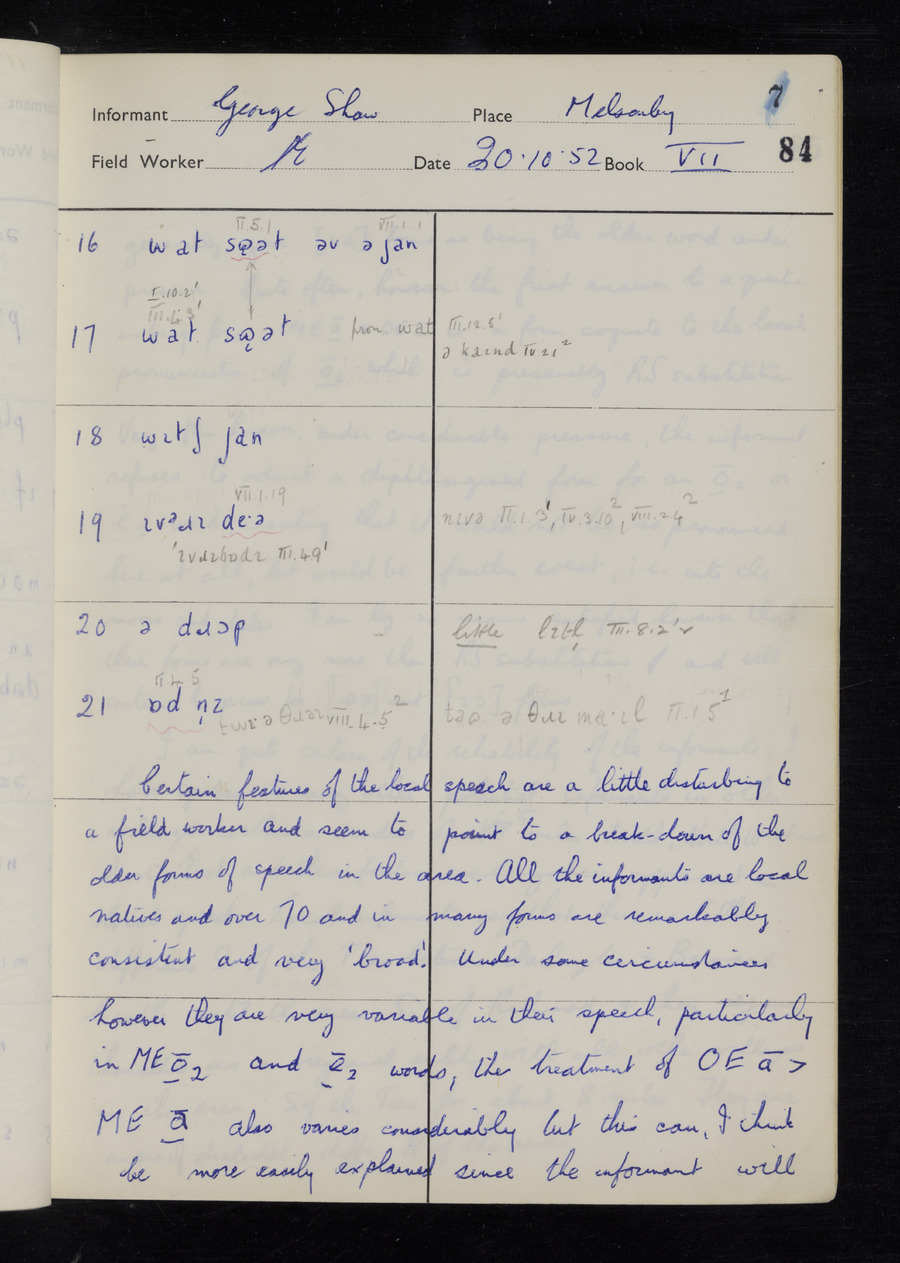 7
Informant George Shaw Place Melsonby
84
Field Worker Date 20·10·52 Book VII
II.5.1 VII.1.1
16 wat sǫət əv ə jan
I.10.2'
III.4.3'
17 wat sǫət pron wat III.12.5'
18 wɪtʃ jan
VII.1.19
19 ɪvəɹɪ de·ə nɪvə II.1.3', IV.3.10², VIII.2.4²
'ɪvɹɪbɒdɪ III.4.9'
20 ə dɹɒp little III.8.2'
II.4.5
21 ɒd n̩ɪ VIII.4.5² təə ə θɹɪ ma·ɪl II.1.5¹
Certain features of the local speech are a little disturbing to
a field worker and seem to point to a break-down of the
older forms of speech in the area. All the informants are local
natives and over 70 and in many forms are remarkably
consistent and very 'broad'. Under some circumstances
however they are very variable in their speech, particularly
in ME ǭ₂ and ę̄₂ words; the treatment of OE ā >
ME ā also varies considerably but this can, I think
be more easily explained since the informant will